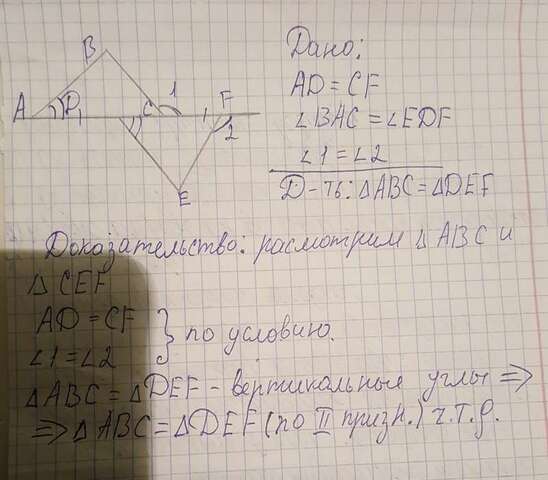 B
A D C 1 F
2
E
Дано:
AD = CF
∠BAC = ∠EDF
∠1 = ∠2
Д-ть: △ABC = △DEF
Доказательство: расмотрим △ABC и
△CEF
AD = CF
∠1 = ∠2 } по условию.
△ABC = △DEF - вертикальные углы ⇒
⇒ △ABC = △DEF (по II призн.) ч.т.д.